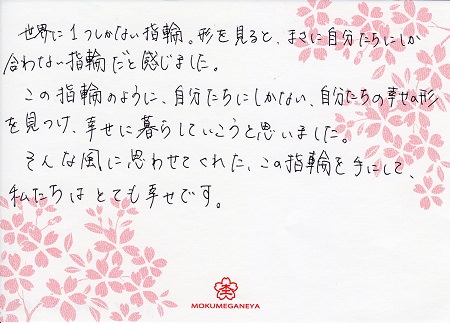 世界に1つしかない指輪。形を見ると、まさに自分たちにしか
合わない指輪だと感じました。
この指輪のように、自分たちにしかない、自分たちの幸せの形
を見つけ、幸せに暮らしていこうと思いました。
そんな風に思わせてくれた、この指輪を手にして、
私たちはとても幸せです。
MOKUMEGANEYA